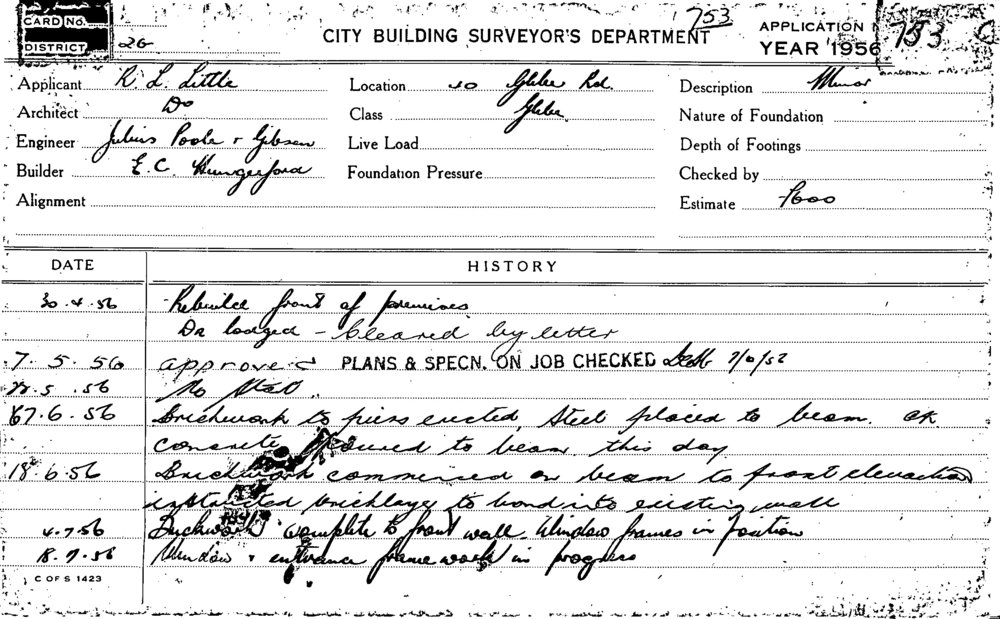 CARD No.
DISTRICT 26
CITY BUILDING SURVEYOR'S DEPARTMENT
753
APPLICATION
YEAR 1956
753
Applicant R. L. Little
Location 20 Glebe Rd.
Description Minor
Architect Do
Class Glebe
Nature of Foundation
Engineer Julius Poole & Gibson
Live Load
Depth of Footings
Builder E. C. Hungerford
Foundation Pressure
Checked by
Alignment
Estimate £600
DATE
HISTORY
30.4.56 Rebuild front of premises
Da lodged - Cleared by letter
7.5.56 approved PLANS & SPECN. ON JOB CHECKED
.5.56 No Start.
7.6.56 Brickwork to piers erected, Steel placed to beam. OK
concrete poured to beam this day
18.6.56 Brickwork commenced on beam to front elevation
instructed bricklayer to bond into existing wall
4.7.56 Brickwork complete to front wall. Window frames in position
18.7.56 Window & entrance frame work in progress
C OF S 1423